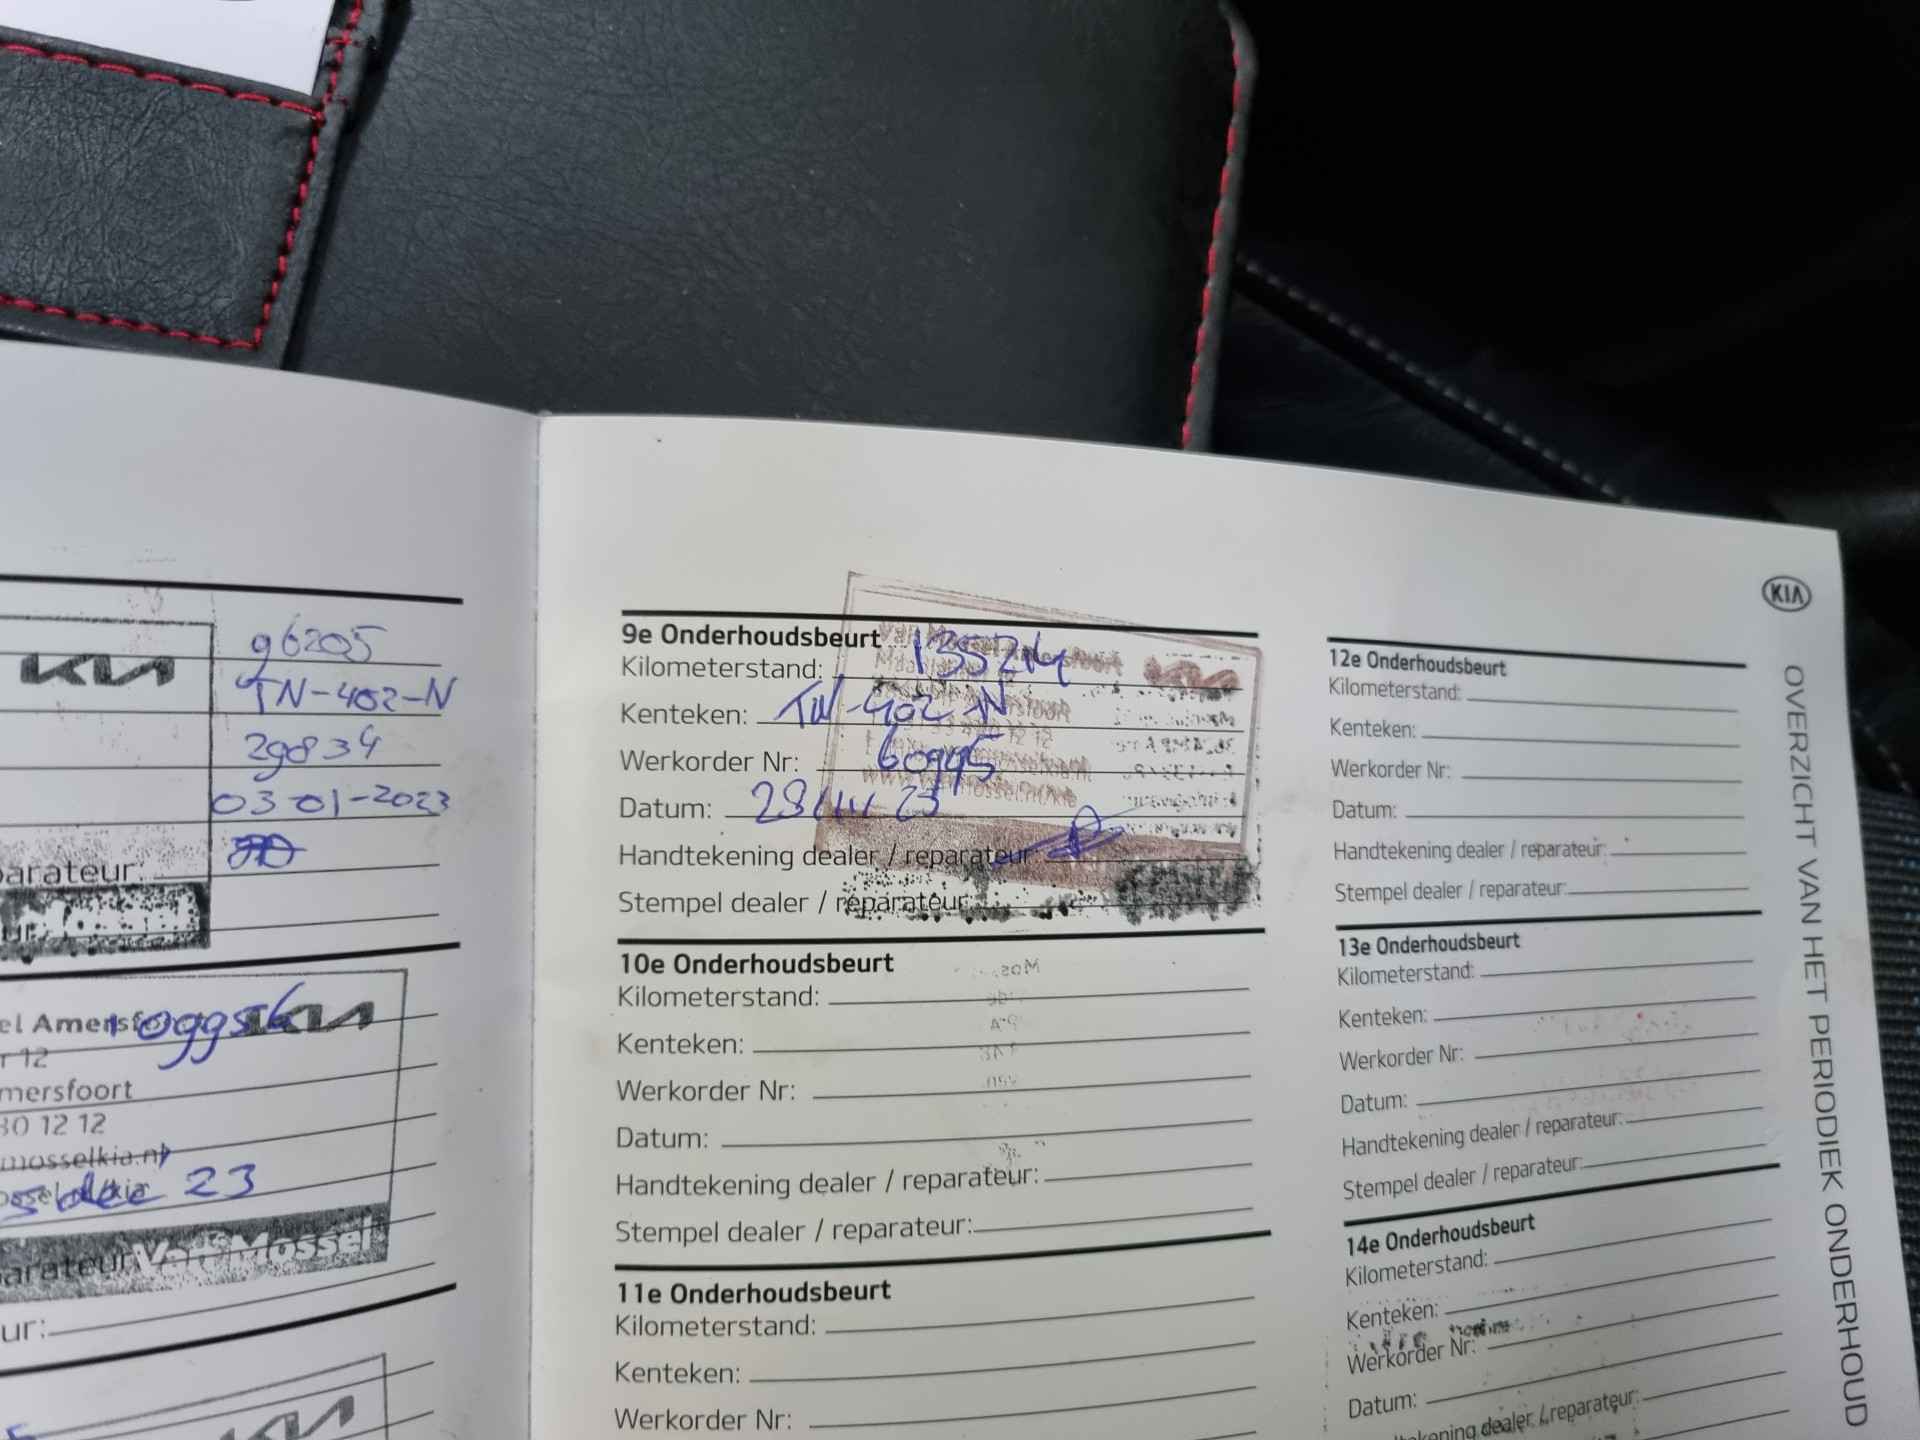 KIA
96205
TN-402-N
29834
03-01-2023
parateur:
el Amersfoort
109956
r 12
mersfoort
30 12 12
mosselkia.nl
5 dec 23
arateur:
Van Mossel
ur:
KIA
9e Onderhoudsbeurt
Kilometerstand: 135214
Kenteken: TN-402-N
Werkorder Nr: 60995
Datum:
Handtekening dealer / reparateur:
Stempel dealer / reparateur:
10e Onderhoudsbeurt
Kilometerstand:
Kenteken:
Werkorder Nr:
Datum:
Handtekening dealer / reparateur:
Stempel dealer / reparateur:
11e Onderhoudsbeurt
Kilometerstand:
Kenteken:
Werkorder Nr:
12e Onderhoudsbeurt
Kilometerstand:
Kenteken:
Werkorder Nr:
Datum:
Handtekening dealer / reparateur:
Stempel dealer / reparateur:
13e Onderhoudsbeurt
Kilometerstand:
Kenteken:
Werkorder Nr:
Datum:
Handtekening dealer / reparateur:
Stempel dealer / reparateur:
14e Onderhoudsbeurt
Kilometerstand:
Kenteken:
Werkorder Nr:
Datum:
Handtekening dealer / reparateur:
KIA
OVERZICHT VAN HET PERIODIEK ONDERHOUD